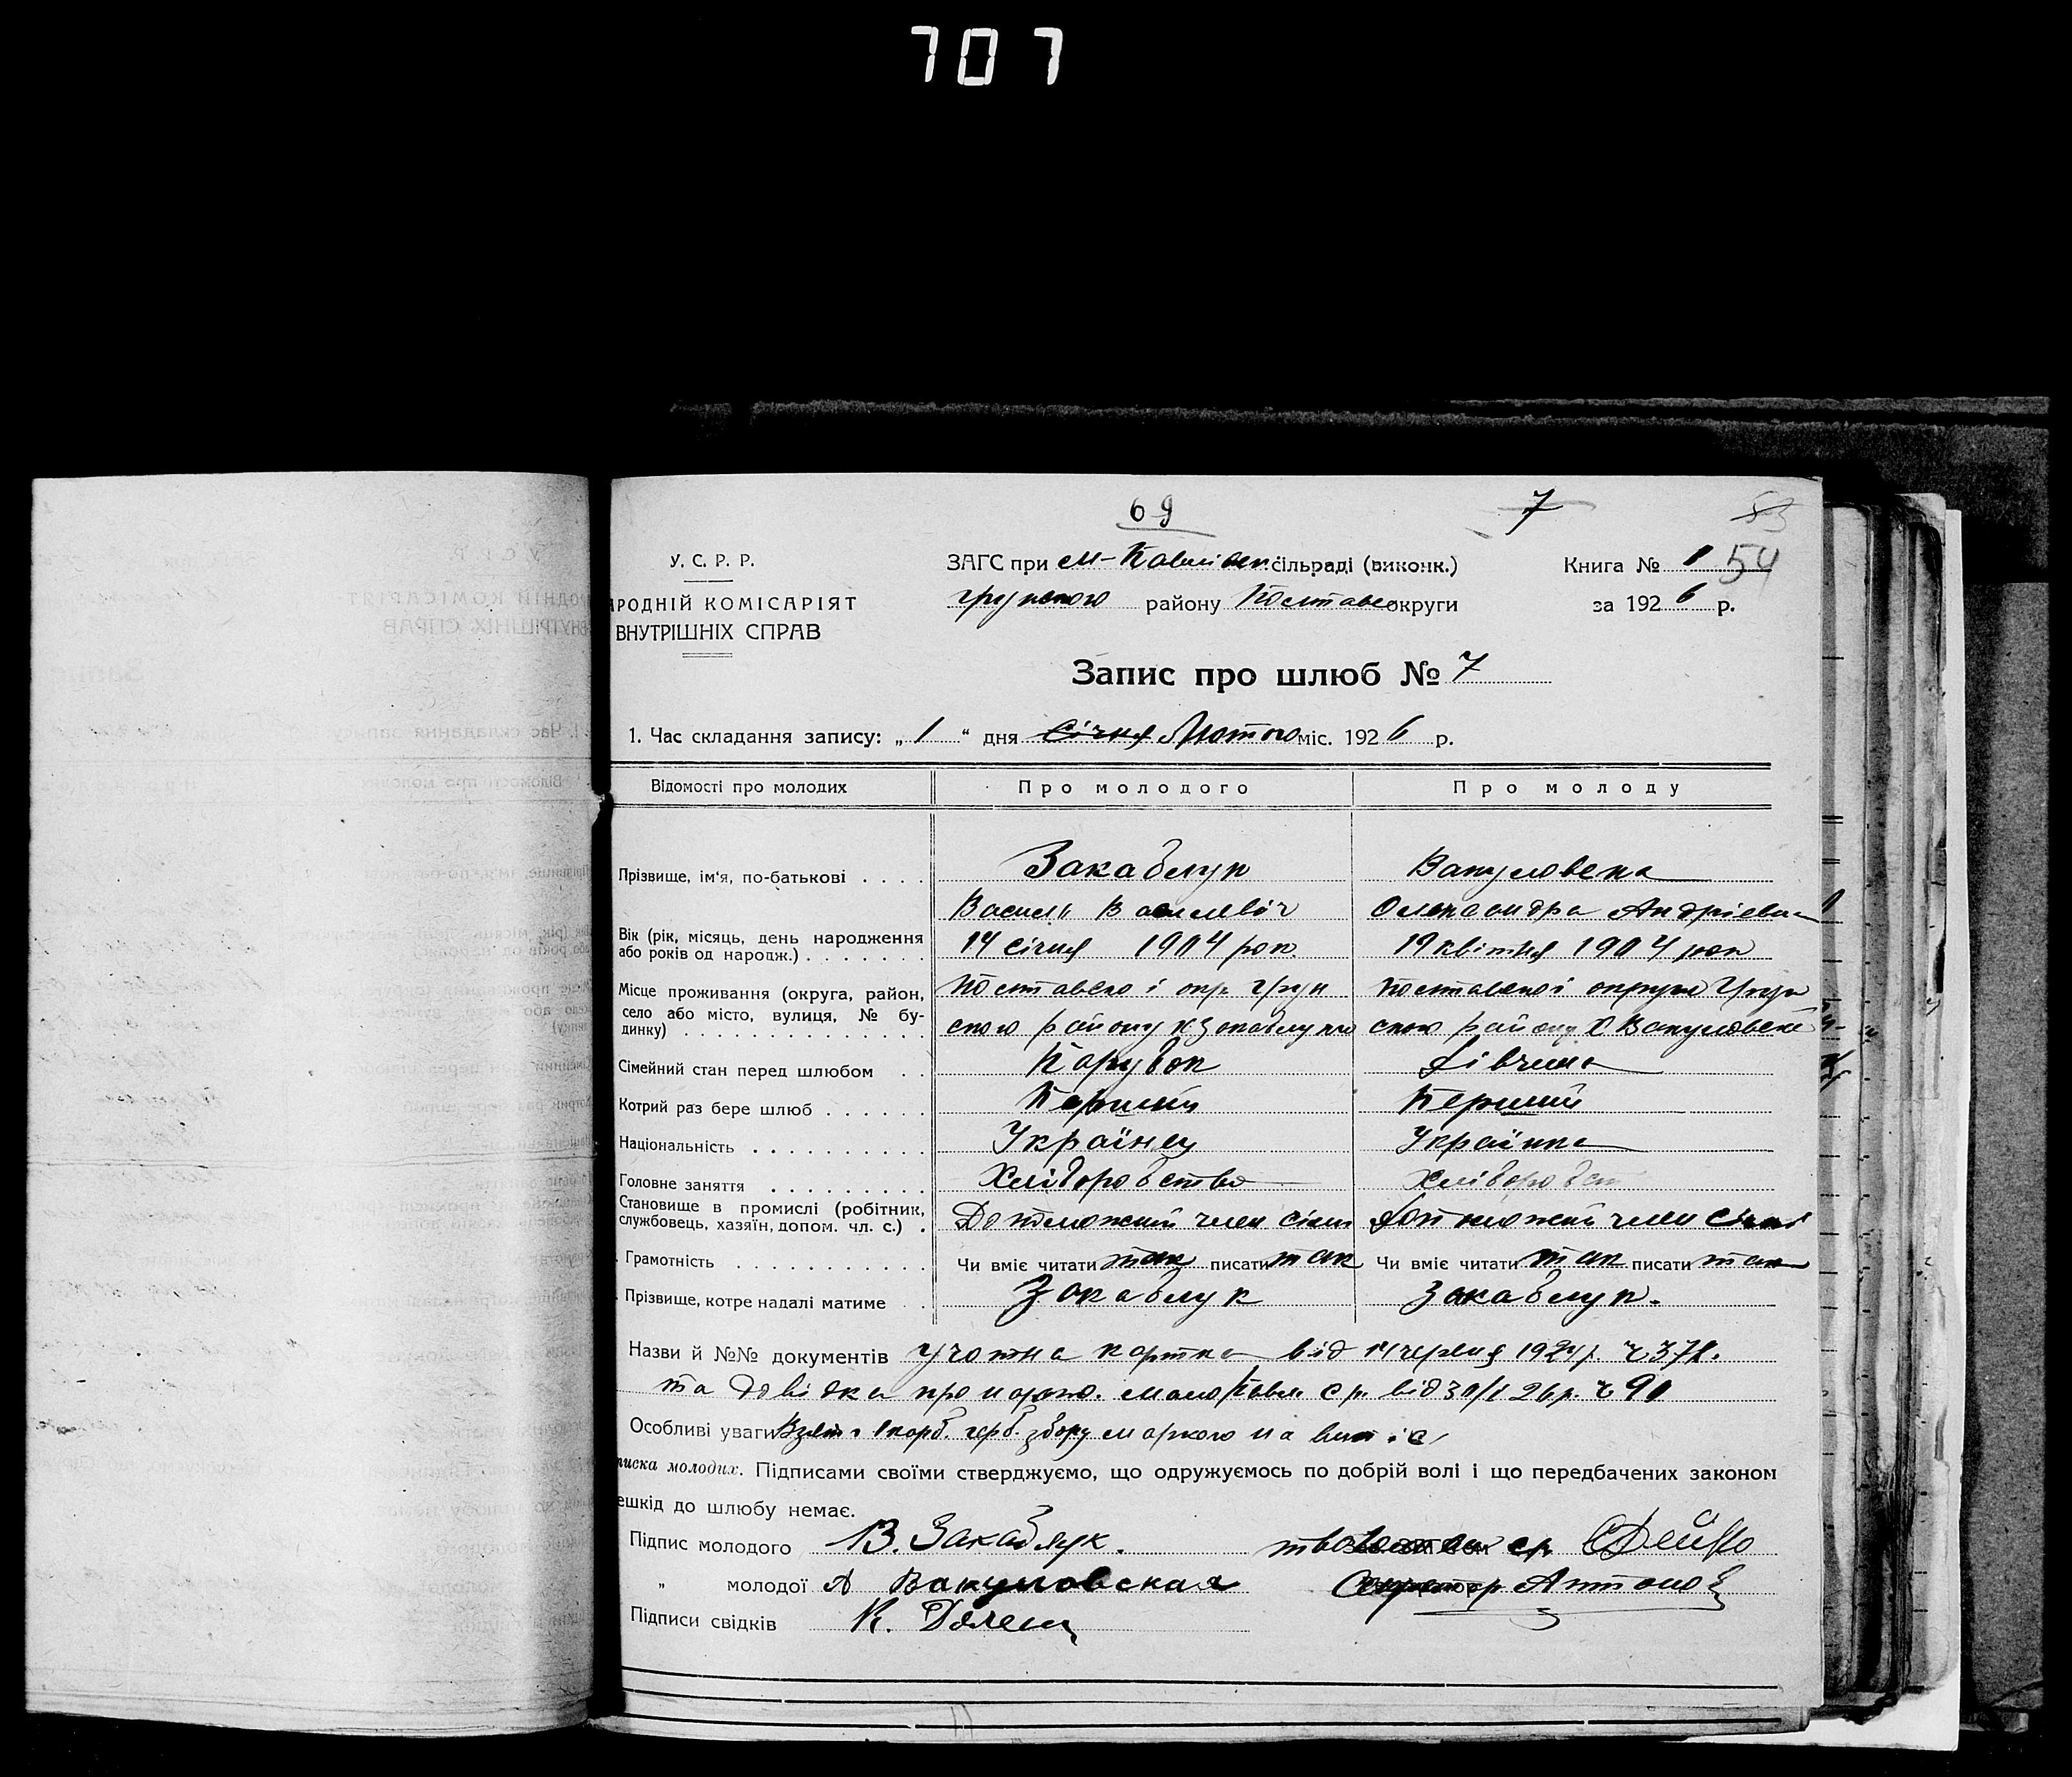 707
69 7 53
У. С. Р. Р. ЗАГС при м-Павлівск. сільраді (виконк.) Книга № 1 54
АРОДНІЙ КОМІСАРІЯТ Грунского району Полтавс округи за 192 6 р.
ВНУТРІШНІХ СПРАВ
Запис про шлюб № 7
1. Час складання запису: „ 1 “ дня Січня Лютого міс. 192 6 р.
Відомості про молодих Про молодого Про молоду
Прізвище, ім'я, по-батькові Закаблук Вакуловска
Василь Василевіч Олександра Андріевна
Вік (рік, місяць, день народження або років од народж.) 14 січня 1904 рок. 19 квітня 1904 рок
Місце проживання (округа, район, Полтавско і окр. Грун Полтавскоі округи Грун
село або місто, вулиця, № бу- ского району х Закаблуки ского району Х Вакуловскі
динку)
Сімейний стан перед шлюбом Парубок Дівчина
Котрий раз бере шлюб Перший Перший
Національність Українец Українка
Головне заняття Хліборобство Хліборобст
Становище в промислі (робітник, службовець, хазяїн, допом. чл. с.) Допоможний член сімі Допоможний член сімі
Грамотність Чи вміє читати так писати так Чи вміє читати так писати так
Прізвище, котре надалі матиме Закаблук Закаблук.
Назви й №№ документів Учотна картка від червня 1924 р. ч 378.
та довідка про народ. мало Павл. с р. від 30/I 26 р. ч 90
Особливі уваги Взято 1 карб. герб. збору маркою на випис
писка молодих. Підписами своїми стверджуємо, що одружуємось по добрій волі і що передбачених законом
ешкід до шлюбу немає.
Підпис молодого В. Закаблук. ср.
„ молодої А Вакуловская Секретар Антоно
Підписи свідків К.